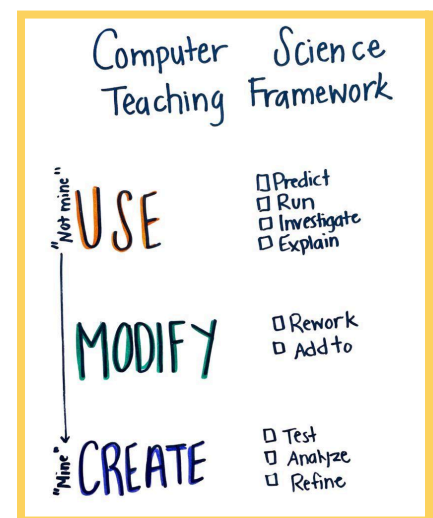 Computer Science
Teaching Framework
"Not mine"
USE
☐ Predict
☐ Run
☐ Investigate
☐ Explain
MODIFY
☐ Rework
☐ Add to
"Mine"
CREATE
☐ Test
☐ Analyze
☐ Refine